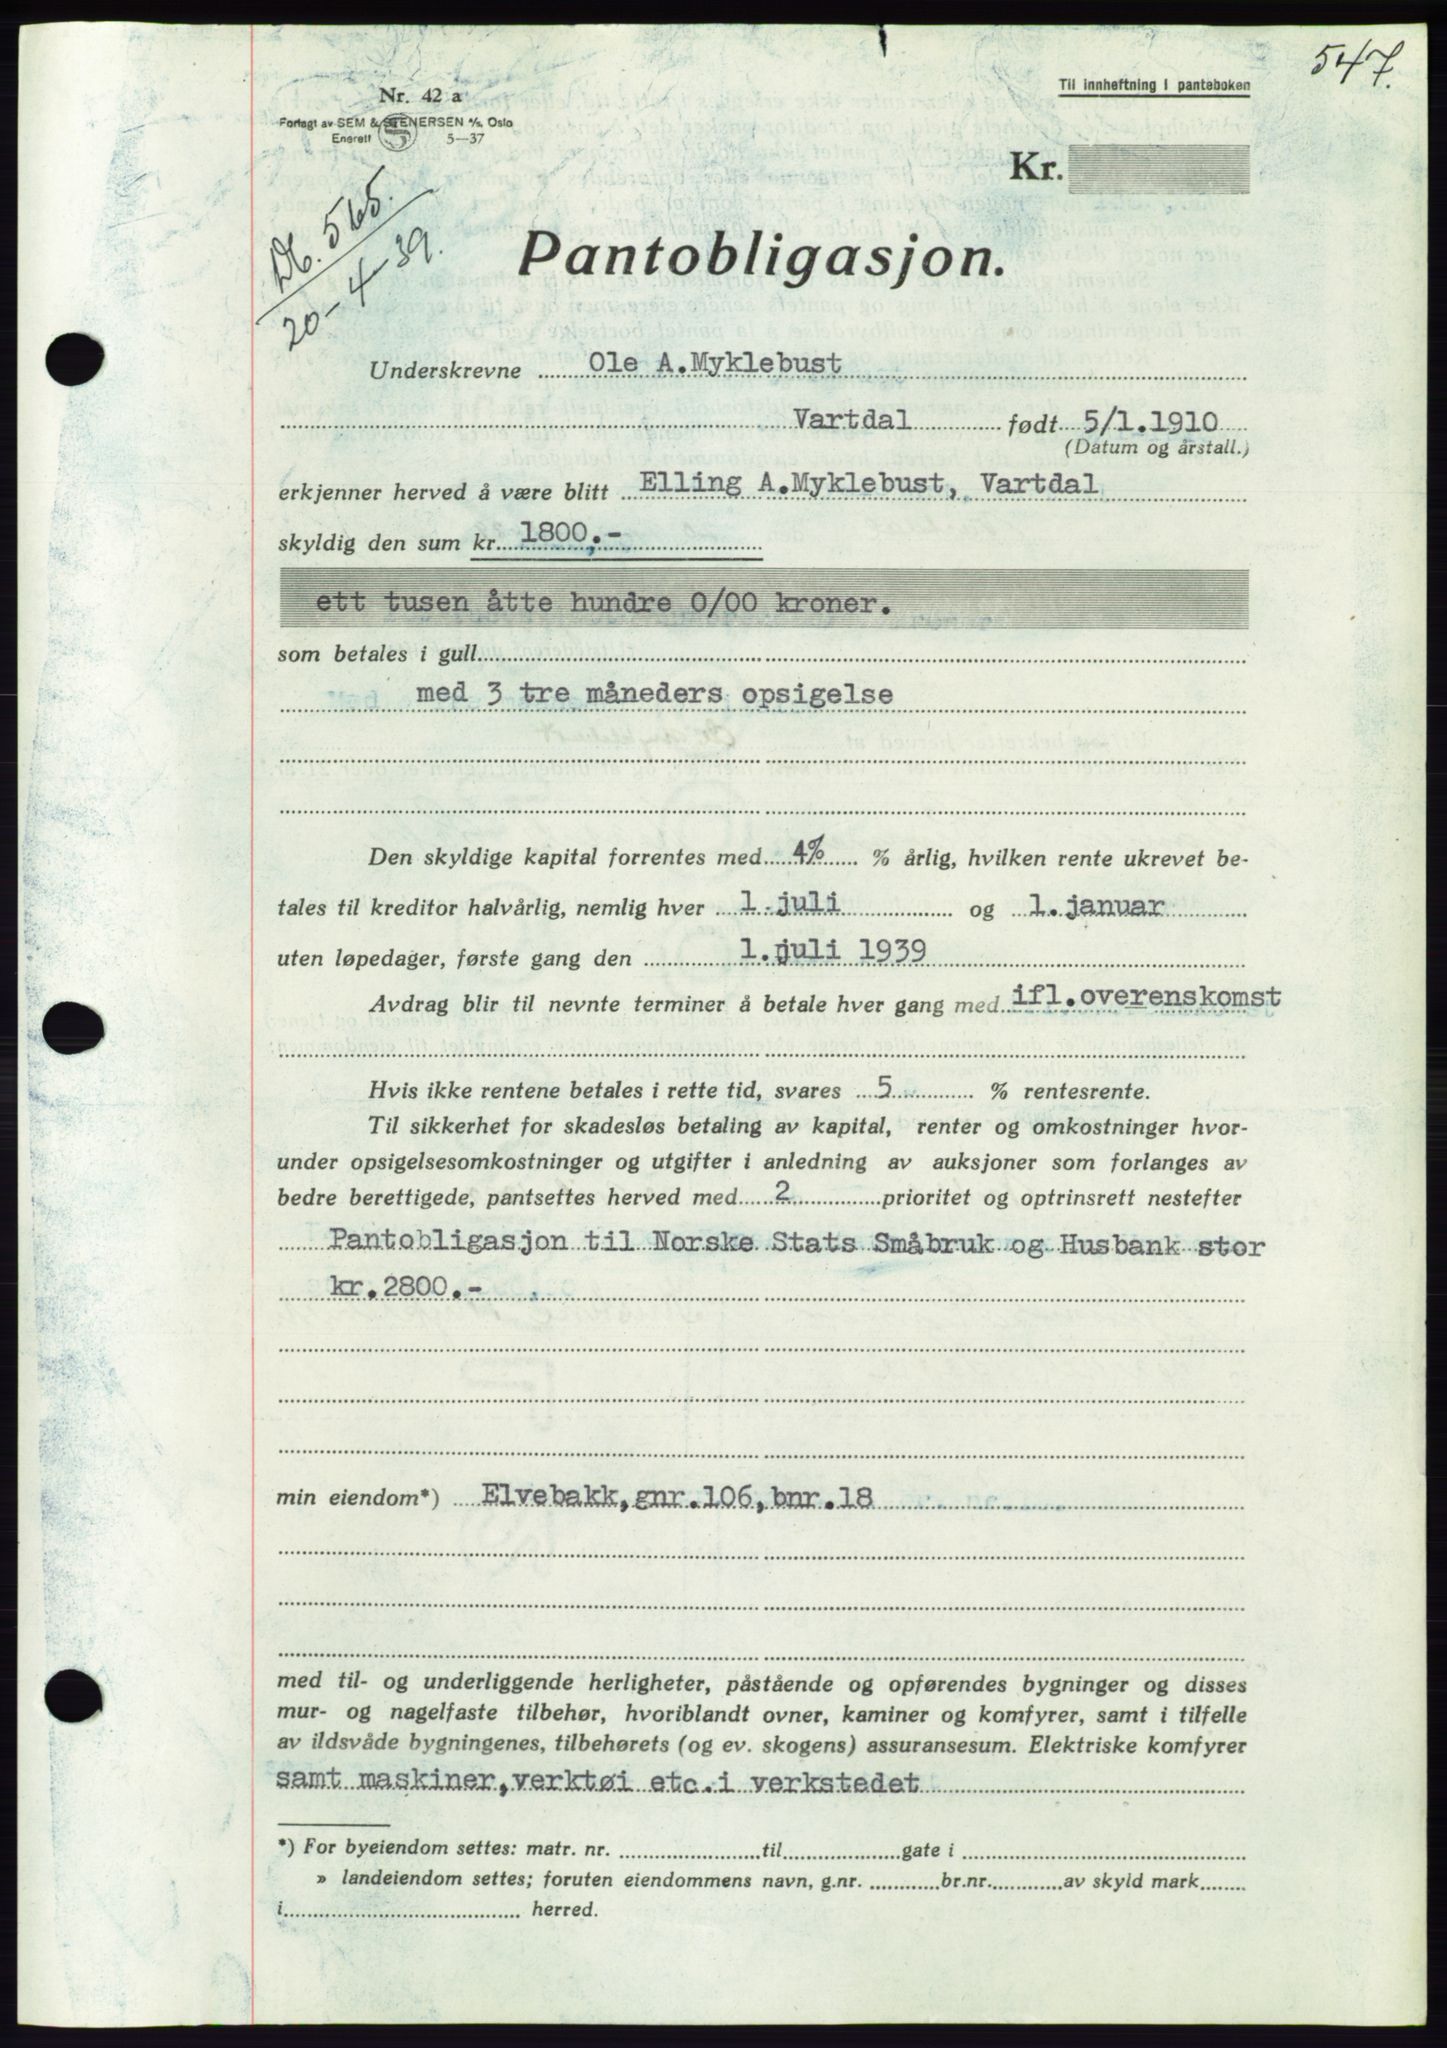 547.
Til innheftning i panteboken
Nr. 42 a
Forlagt av SEM & STENERSEN A/S. Oslo
Enerett 5—37
Kr.
Db. 565.
20-4-39.
Pantobligasjon.
Underskrevne Ole A.Myklebust
Vartdal født 5/1.1910
(Datum og årstall.)
erkjenner herved å være blitt Elling A.Myklebust, Vartdal
skyldig den sum kr. 1800.-
ett tusen åtte hundre 0/00 kroner.
som betales i gull
med 3 tre måneders opsigelse
Den skyldige kapital forrentes med 4% % årlig, hvilken rente ukrevet be-
tales til kreditor halvårlig, nemlig hver 1.juli og 1.januar
uten løpedager, første gang den 1.juli 1939
Avdrag blir til nevnte terminer å betale hver gang med ifl.overenskomst
Hvis ikke rentene betales i rette tid, svares 5 % rentesrente.
Til sikkerhet for skadesløs betaling av kapital, renter og omkostninger hvor-
under opsigelsesomkostninger og utgifter i anledning av auksjoner som forlanges av
bedre berettigede, pantsettes herved med 2 prioritet og optrinsrett nestefter
Pantobligasjon til Norske Stats Småbruk og Husbank stor
kr.2800.-
min eiendom*) Elvebakk,gnr.106,bnr.18
med til- og underliggende herligheter, påstående og opførendes bygninger og disses
mur- og nagelfaste tilbehør, hvoriblandt ovner, kaminer og komfyrer, samt i tilfelle
av ildsvåde bygningenes, tilbehørets (og ev. skogens) assuransesum. Elektriske komfyrer
samt maskiner,verktøi etc.i verkstedet
*) For byeiendom settes: matr. nr. til gate i
» landeiendom settes; foruten eiendommens navn, g.nr. br.nr. av skyld mark
i herred.